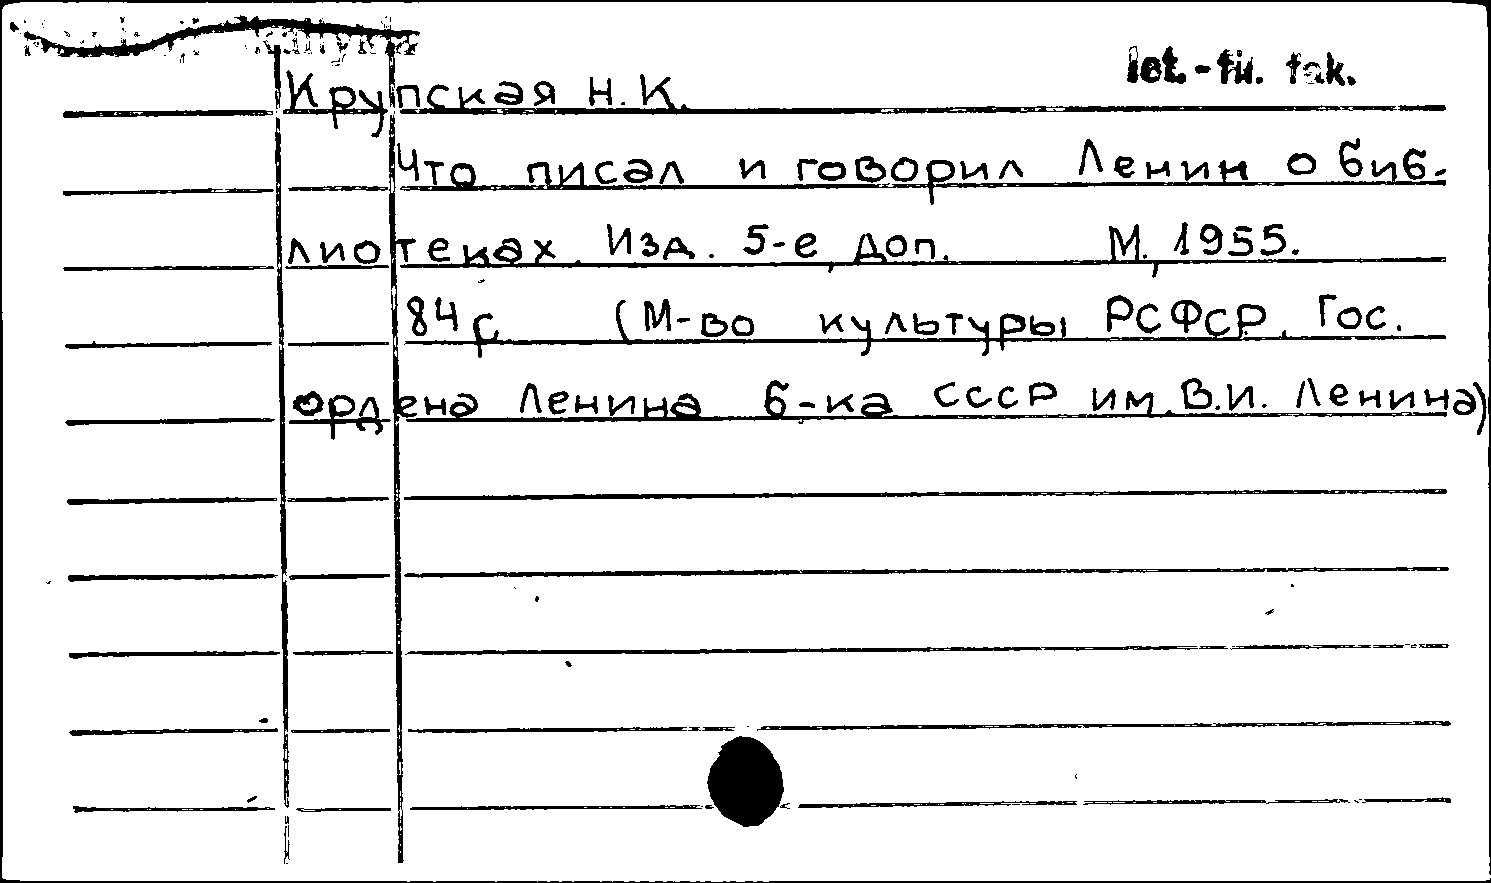 Ist.-fil. fak.
Крупская Н.К.
Что писал и говорил Ленин о биб-
лиотеках. Изд. 5-е, доп. М., 1955.
84 с. (М-во культуры РСФСР. Гос.
ордена Ленина б-ка СССР им. В.И. Ленина)